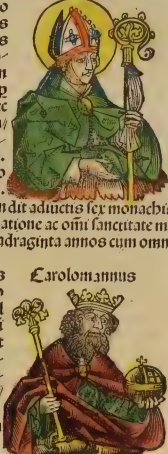 ndit adiuctis sex monachis
atione ac omi sanctitate m
adraginta annos cum omn
Carolomannus